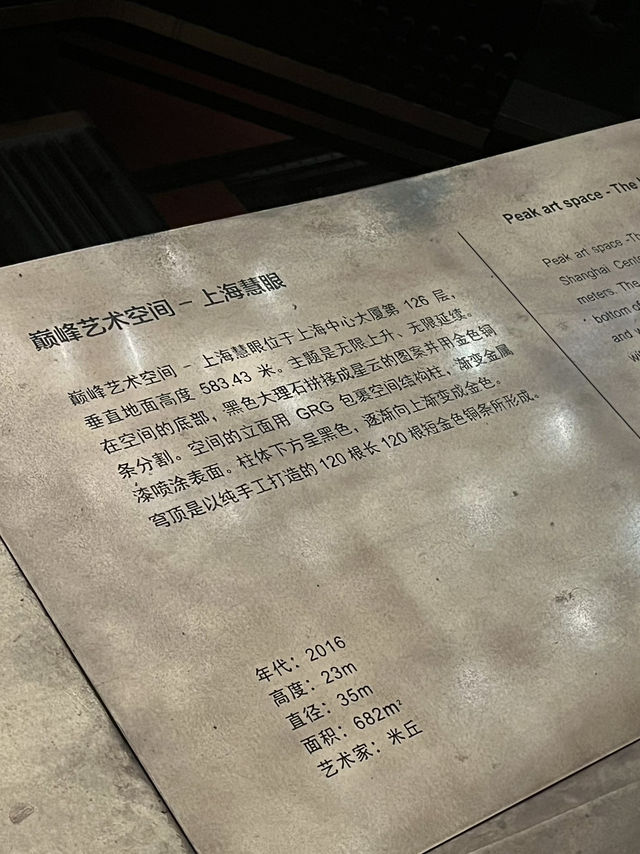 巅峰艺术空间 - 上海慧眼
巅峰艺术空间 - 上海慧眼位于上海中心大厦第 126 层，
垂直地面高度 583.43 米。主题是无限上升、无限延续。
在空间的底部，黑色大理石拼接成星云的图案并用金色铜
条分割。空间的立面用 GRG 包裹空间结构柱，渐变金属
漆喷涂表面。柱体下方呈黑色，逐渐向上渐变成金色。
穹顶是以纯手工打造的 120 根长 120 根短金色铜条所形成。
年代：2016
高度：23m
直径：35m
面积：682m²
艺术家：米丘
Peak art space - The
Peak art space -Th
Shanghai Cente
meters. The
bottom of
and